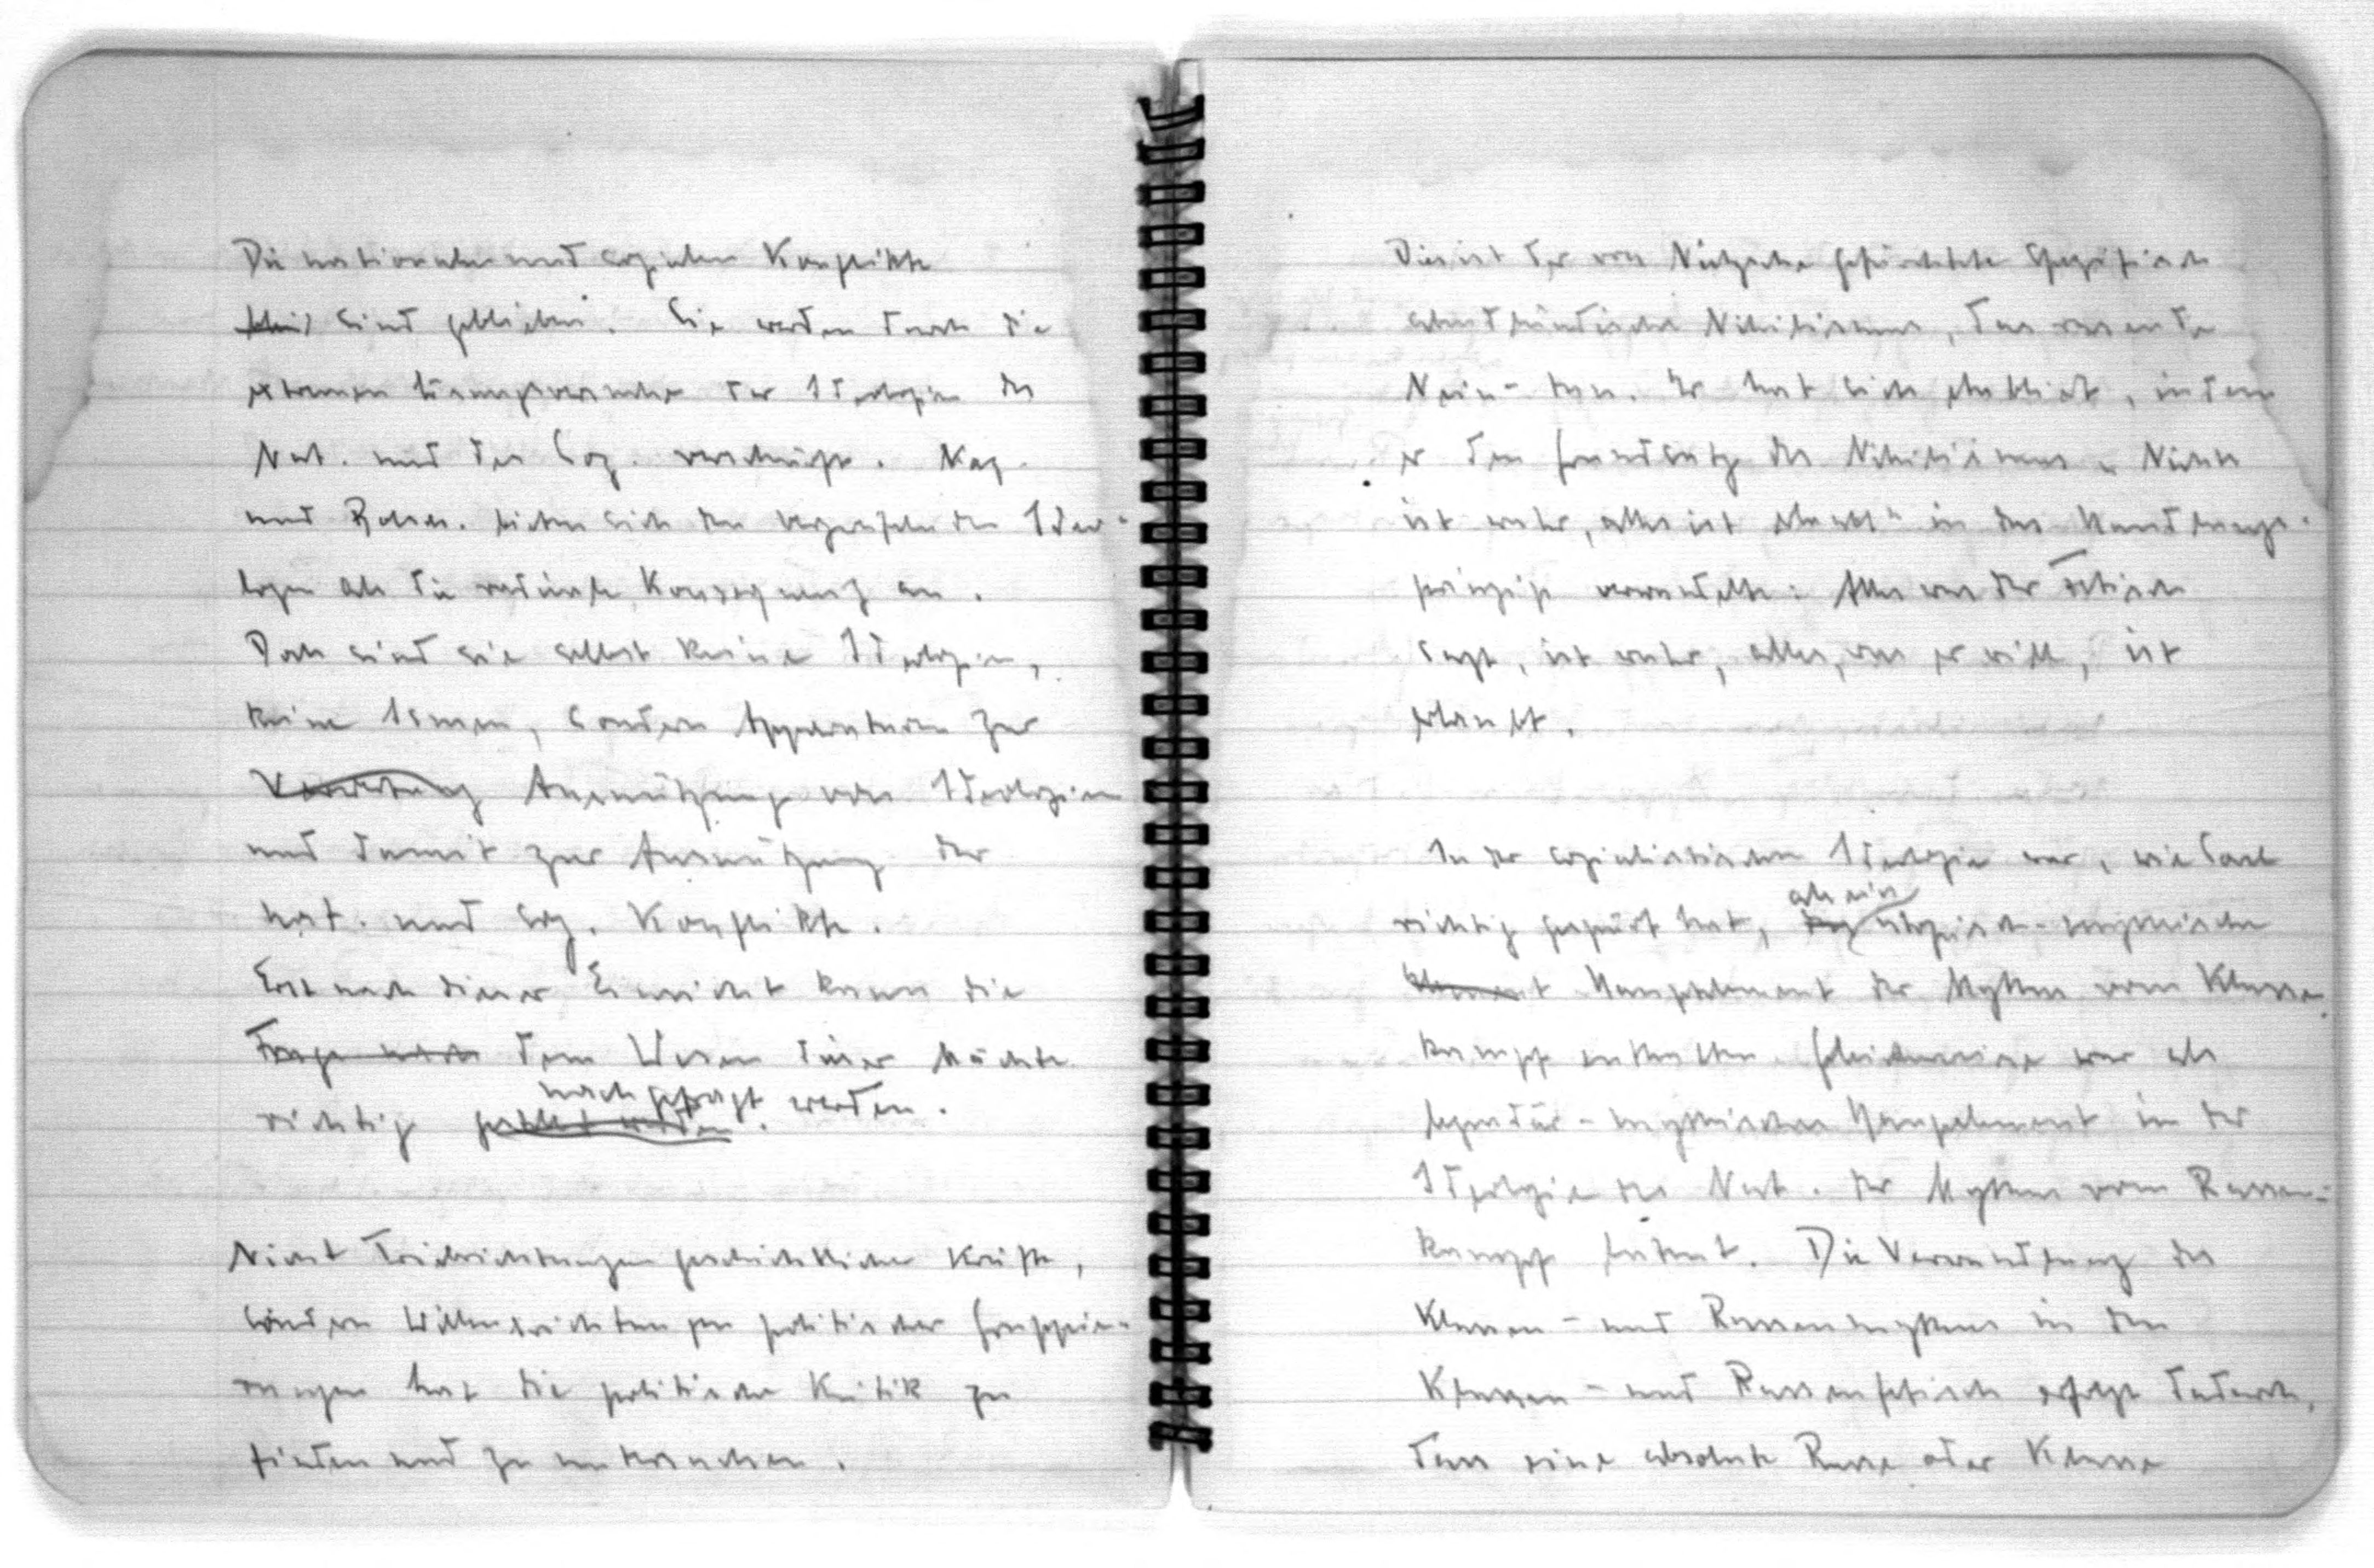 Die nationalen und sozialen Konflikte
sind geblieben. Sie werden durch die
extremen Lösungsversuche der Ideologien des
Nat. und des Soz. verschärft. Naz.
und Bolsch. bieten sich den verzweifelnden Ideo-
logen als die radikale Konsequenz an.
Doch sind sie selbst keine Ideologien,
keine Ismen, sondern Apparaturen zur
Verwertung Ausnützung von Ideologien
und damit zur Ausnützung der
nat. und soz. Konflikte.
Erst nach dieser Einsicht kann die
Frage nach dem Wesen dieser Mächte
nachgefragt werden.
richtig gestellt werden.
Nicht Triebrichtungen geschichtlicher Kräfte,
sondern Willensrichtungen politischer Gruppie-
rungen hat die politische Kritik zu
finden und zu untersuchen.
Dies ist der von Nietzsche gefürchtete spezifisch
abendländische Nihilismus, das rasende
Nein-tun. Er hat sich etabliert, indem
er den Grundsatz des Nihilismus „Nichts
ist wahr, alles ist erlaubt" in das Handlungs-
prinzip verwandelte: Alles was der Fetisch
sagt, ist wahr, alles, was er will, ist
erlaubt.
In der sozialistischen Ideologie war, wie Sorel
als ein
richtig gespürt hat, utopisch-mythisches
Element Hauptelement der Mythos vom Klassen-
kampf enthalten. Gleicherweise war als
legendär-mythisches Hauptelement in der
Ideologie des Nat. der Mythos vom Rassen-
kampf betont. Die Verwandlung des
Klassen- und Rassenmythus in den
Klassen- und Rassenfetisch erfolgt dadurch,
dass eine absolute Rasse oder Klasse